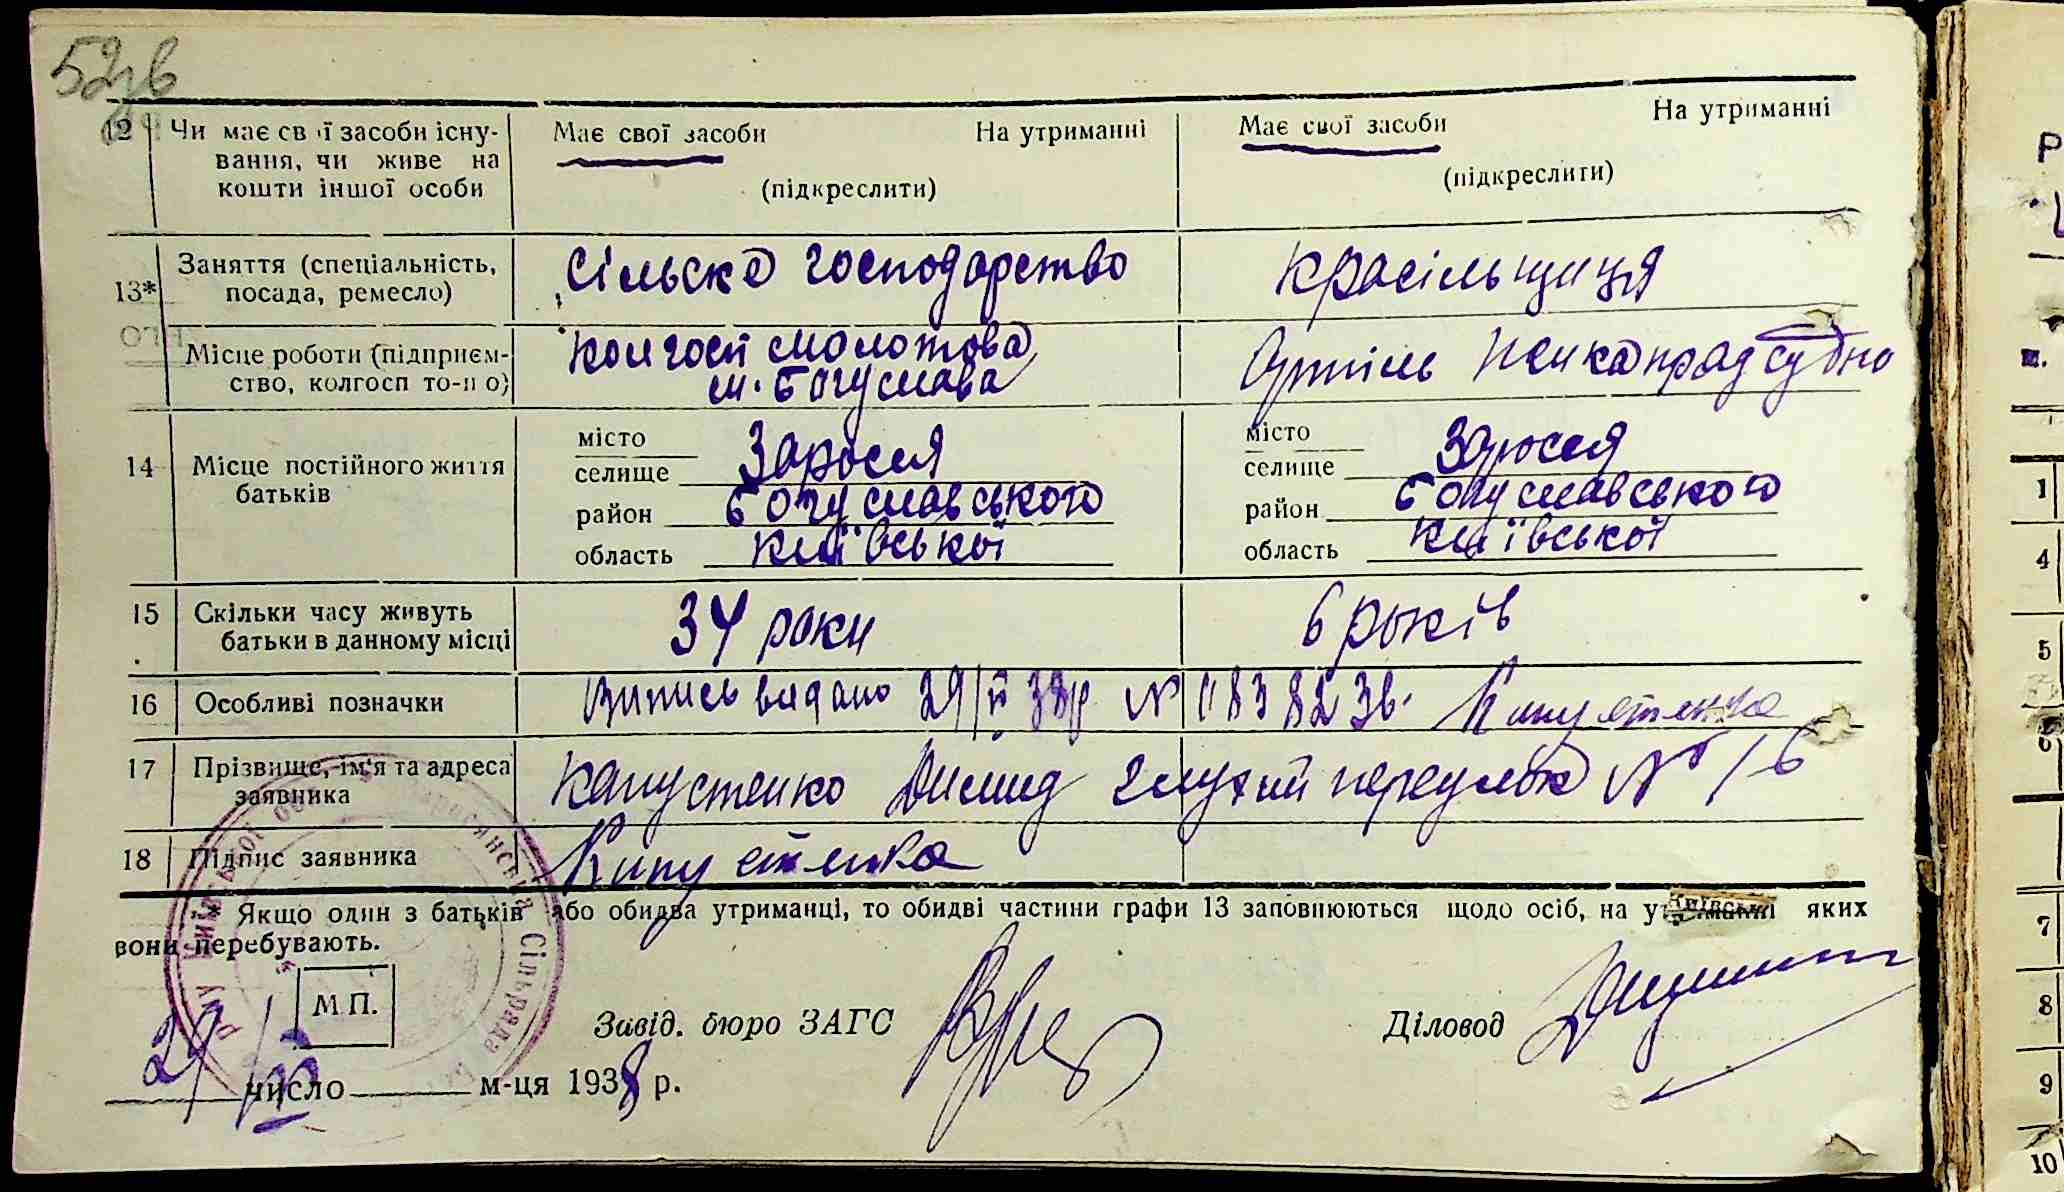 52 зв
12 Чи має свої засоби існу- Має свої засоби На утриманні Має свої засоби На утриманні
вання, чи живе на
кошти іншої особи (підкреслити) (підкреслити)
13* Заняття (спеціальність, Сільске господарство Красільщиця
посада, ремесло)
Місце роботи (підприєм- Колгосп Молотова Артіль
ство, колгосп то-що) м. Богуслава
14 Місце постійного життя місто місто
батьків селище Заросся селище Заросся
район Богуславського район Богуславського
область Київської область Київської
15 Скільки часу живуть 34 роки 6 років
батьки в данному місці
16 Особливі позначки Випись видано 29/ 38р. № Капустенко
17 Прізвище, ім'я та адреса Капустенко Глухий переулок № 16
заявника
18 Підпис заявника Капустенко
* Якщо один з батьків або обидва утриманці, то обидві частини графи 13 заповнюються щодо осіб, на утриманні яких
вони перебувають.
М.П.
Завід. бюро ЗАГС Діловод
29 число м-ця 1938 р.
Сільрада
P
ш.
1
4
5
6
7
8
9
10